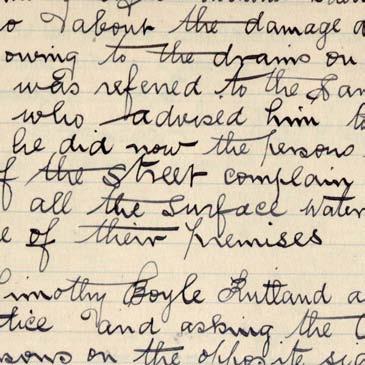 o about the damage a
owing to the drains on
was referred to the San
who advised him to
he did now the persons
f the Street complain
all the surface water
e of their premises
Timothy Boyle Rutland a
tice and asking the
sons on the opposite sid